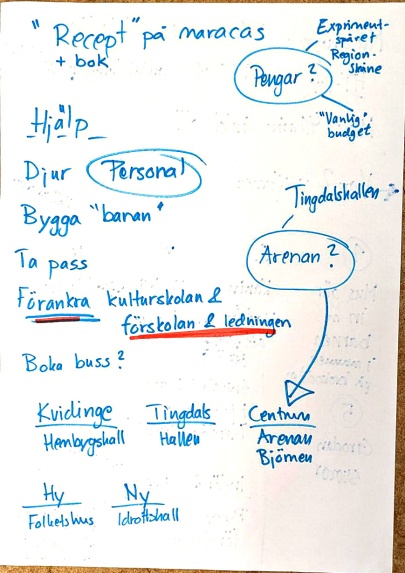 "Recept" på maracas
+ bok
Expriment-
spåret
Region-
Skåne
Pengar?
"Vanlig"
budget
Hjälp
Djur Personal
Bygga "banan"
Ta pass
Förankra kulturskolan &
förskolan & ledningen
Boka buss?
Tingdalshallen
Arenan?
Kvidinge
Hembygshall
Tingdals
Hallen
Centrum
Arenan
Björnen
Hy
Folketshus
Ny
Idrottshall